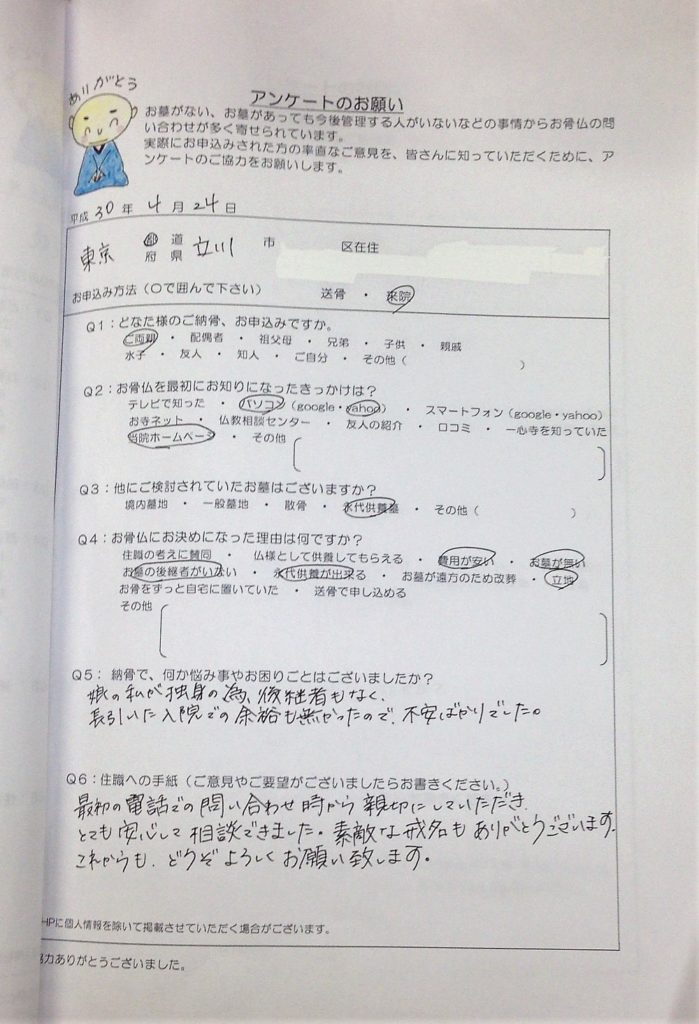 ありがとう
アンケートのお願い
お墓がない、お墓があっても今後管理する人がいないなどの事情からお骨仏の問
い合わせが多く寄せられています。
実際にお申込みされた方の率直なご意見を、皆さんに知っていただくために、ア
ンケートのご協力をお願いします。
平成 30 年 4 月 24 日
東京 都 道 立川 市 区在住
府 県
お申込み方法（〇で囲んで下さい） 送骨 ・ 来院
Q1：どなた様のご納骨、お申込みですか。
ご両親 ・ 配偶者 ・ 祖父母 ・ 兄弟 ・ 子供 ・ 親戚
水子 ・ 友人 ・ 知人 ・ ご自分 ・ その他（ ）
Q2：お骨仏を最初にお知りになったきっかけは？
テレビで知った ・ パソコン（google・yahoo） ・ スマートフォン（google・yahoo）
お寺ネット ・ 仏教相談センター ・ 友人の紹介 ・ 口コミ ・ 一心寺を知っていた
当院ホームページ ・ その他
Q3：他にご検討されていたお墓はございますか？
境内墓地 ・ 一般墓地 ・ 散骨 ・ 永代供養墓 ・ その他（ ）
Q4：お骨仏にお決めになった理由は何ですか？
住職の考えに賛同 ・ 仏様として供養してもらえる ・ 費用が安い ・ お墓が無い
お墓の後継者がいない ・ 永代供養が出来る ・ お墓が遠方のため改葬 ・ 立地
お骨をずっと自宅に置いていた ・ 送骨で申し込める
その他
Q5：納骨で、何か悩み事やお困りごとはございましたか？
娘の私が独身の為、後継者もなく、
長引いた入院での余裕も無かったので、不安ばかりでした。
Q6：住職への手紙（ご意見やご要望がございましたらお書きください。）
最初の電話での問い合わせ時から親切にしていただき、
とても安心して相談できました。素敵な戒名もありがとうございます。
これからも、どうぞよろしくお願い致します。
HPに個人情報を除いて掲載させていただく場合がございます。
協力ありがとうございました。